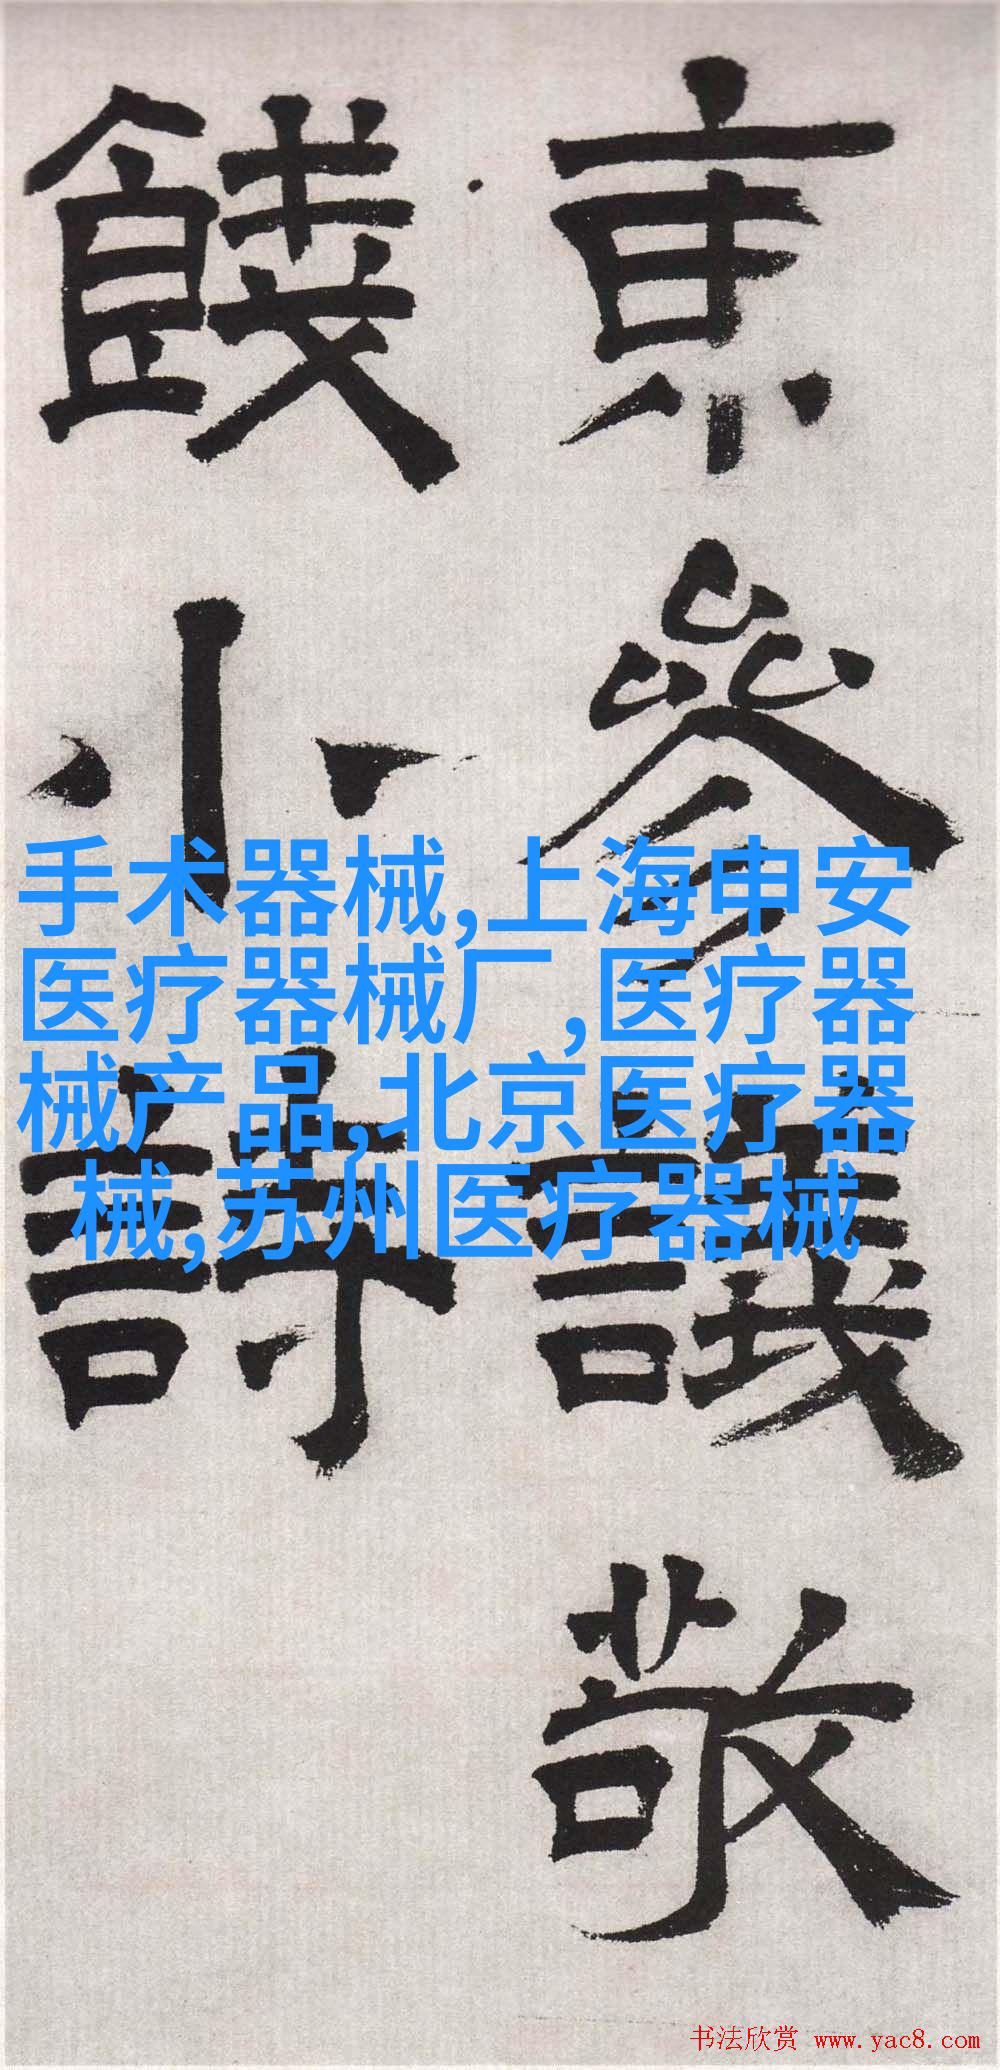 參議敬
餞小詩
手术器械,上海申安
医疗器械厂,医疗器
械产品,北京医疗器
械,苏州医疗器械
书法欣赏 www.yac8.com